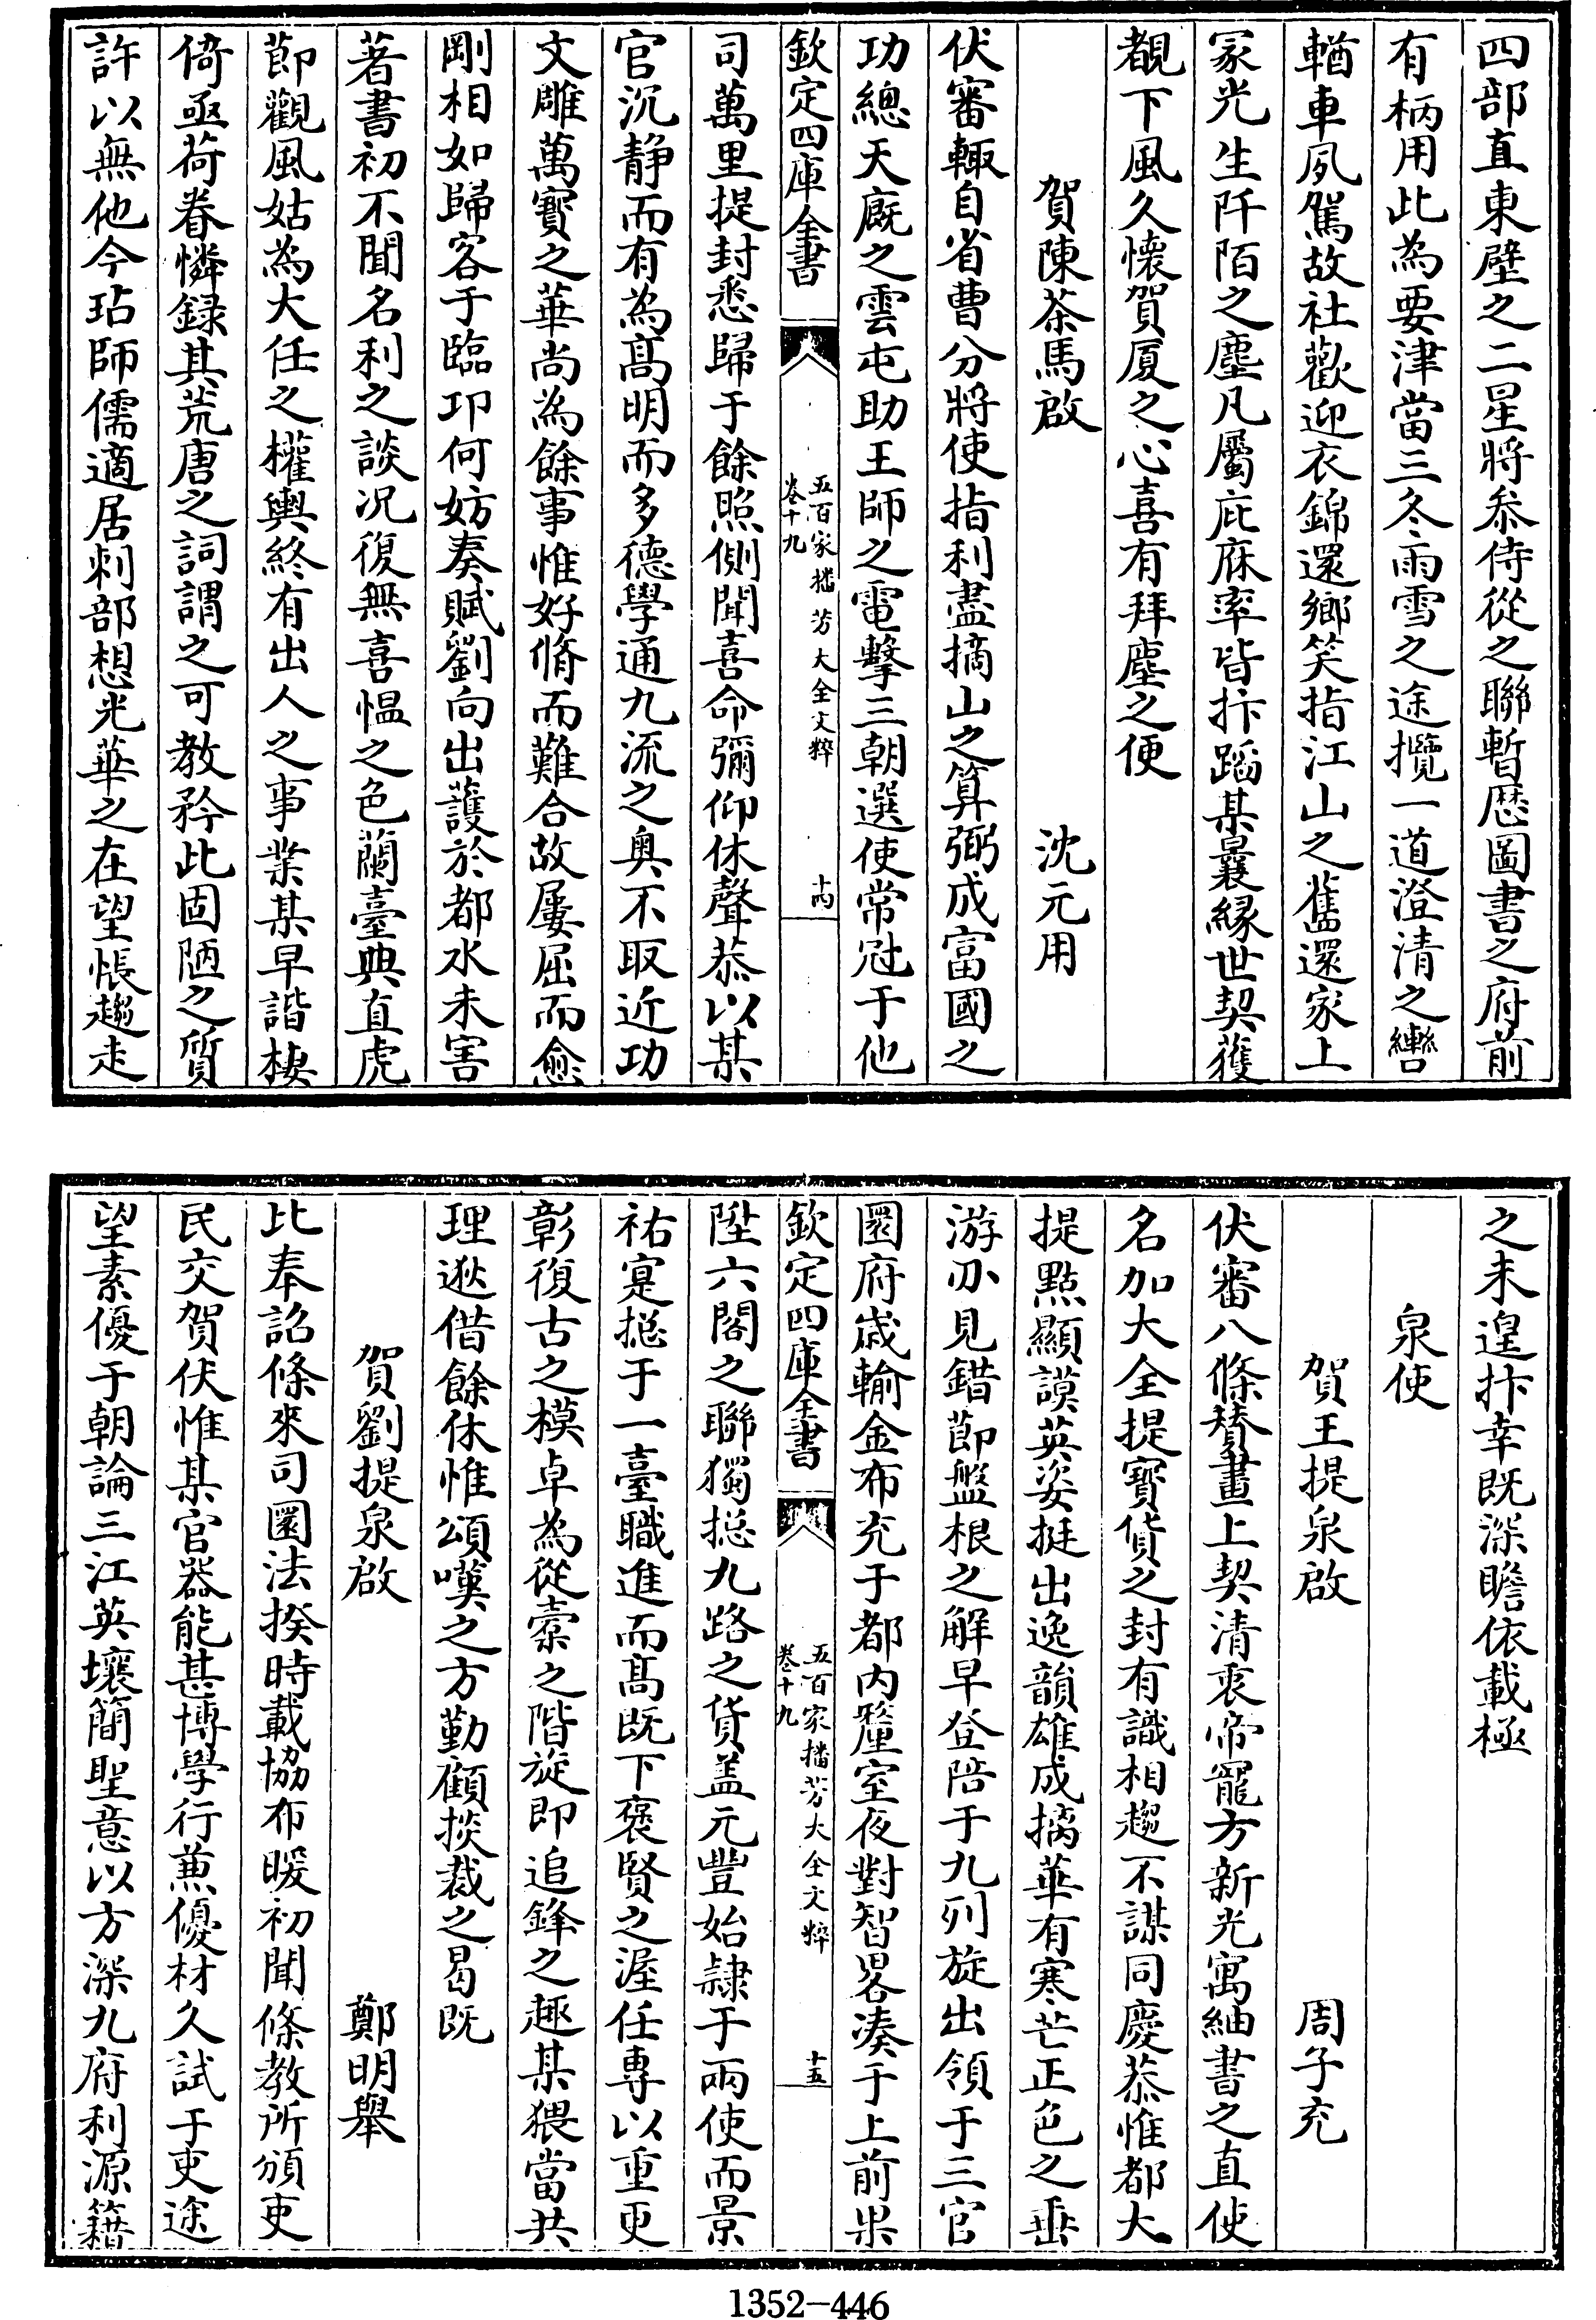 四部直東壁之二星將叅侍從之聯暫歴圖書之府前
有柄用此為要津當三冬雨雪之途攬一道澄清之轡
輶車夙駕故社歡迎衣錦還鄉笑指江山之舊還家上
冢光生阡陌之塵凡屬庇庥率皆抃蹈某曩縁世契獲
覩下風久懐賀厦之心喜有拜塵之便
賀陳茶馬啟
沈元用
伏審輙自省曹分將使指利盡摘山之算弼成富國之
功總天廐之雲屯助王師之電擊三朝選使常冠于他
欽定四庫全書
五百家播芳大全文粹
卷十九
十四
司萬里提封悉歸于餘照側聞喜命彌仰休聲恭以某
官沉静而有為髙明而多德學通九流之奥不取近功
文雕萬寳之華尚為餘事惟好脩而難合故屢屈而愈
剛相如歸客于臨卭何妨奏賦劉向出䕶於都水未害
著書初不聞名利之談况復無喜愠之色蘭臺典直虎
節觀風姑為大任之權輿終有出人之事業某早諧棲
倚亟荷眷憐録其荒唐之詞謂之可教矜此固陋之質
許以無他今玷師儒適居刺部想光華之在望悵趨走
之未遑抃幸既深瞻依載極
泉使
賀王提泉啟
周子充
伏審八條賛畫上契清衷帝寵方新光寓紬書之直使
名加大全提寳貨之封有識相趨不謀同慶恭惟都大
提㸃顯謨英姿挺出逸韻雄成摛華有寒芒正色之垂
游刃見錯節盤根之解早登陪于九列旋出領于三官
圜府歳輸金布充于都内釐室夜對智畧凑于上前果
欽定四庫全書
五百家播芳大全文粹
卷十九
十五
陞六閣之聯獨揔九路之貨盖元豐始隷于兩使而景
祐寔揔于一臺職進而髙既下褒賢之渥任専以重更
彰復古之模卓為從槖之階旋即追鋒之趣某猥當共
理逖借餘休惟頌嘆之方勤顧掞裁之曷既
賀劉提泉啟
鄭明舉
比奉詔條來司圜法揆時載協布暖初聞條教所頒吏
民交賀伏惟某官器能甚博學行兼優材久試于吏途
望素優于朝論三江英壤簡聖意以方深九府利源籍
1352-446